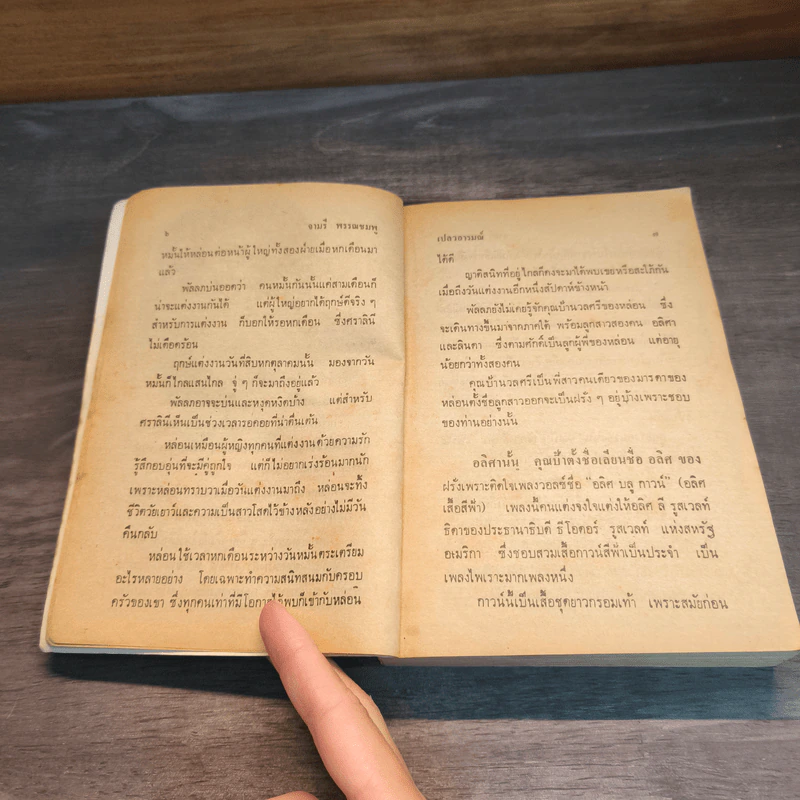 ๖
จามรี พรรณชมพู
หมั้นให้หล่อนต่อหน้าผู้ใหญ่ทั้งสองฝ่ายเมื่อหกเดือนมา
แล้ว
พัลลภบ่นออดว่า คนหมั้นกันนั้นแต่สามเดือนก็
น่าจะแต่งงานกันได้ แต่ผู้ใหญ่อยากได้ฤกษ์ดีจริง ๆ
สำหรับการแต่งงาน ก็บอกให้รอหกเดือน ซึ่งศราลินี
ไม่เดือดร้อน
ฤกษ์แต่งงานวันที่สิบหกตุลาคมนั้น มองจากวัน
หมั้นก็ไกลแสนไกล จู่ ๆ ก็จะมาถึงอยู่แล้ว
พัลลภอาจจะบ่นและหงุดหงิดบ้าง แต่สำหรับ
ศราลินีเห็นเป็นช่วงเวลารอคอยที่น่าตื่นเต้น
หล่อนเหมือนผู้หญิงทุกคนที่แต่งงานด้วยความรัก
รู้สึกอบอุ่นที่จะมีคู่ถูกใจ แต่ก็ไม่อยากเร่งร้อนมากนัก
เพราะหล่อนทราบว่าเมื่อวันแต่งงานมาถึง หล่อนจะทิ้ง
ชีวิตวัยเยาว์และความเป็นสาวโสดไว้ข้างหลังอย่างไม่มีวัน
คืนกลับ
หล่อนใช้เวลาหกเดือนระหว่างวันหมั้นตระเตรียม
อะไรหลายอย่าง โดยเฉพาะทำความสนิทสนมกับครอบ
ครัวของเขา ซึ่งทุกคนเท่าที่มีโอกาสได้พบก็เข้ากับหล่อน
เปลวอารมณ์
๗
ได้ดี
ญาติสนิทที่อยู่ใกลก็คงจะมาได้พบเธอหรือสะใภ้กัน
เมื่อถึงวันแต่งงานอีกหนึ่งสัปดาห์ข้างหน้า
พัลลภยังไม่เคยรู้จักคุณป้านวลศรีของหล่อน ซึ่ง
จะเดินทางขึ้นมาจากภาคใต้ พร้อมลูกสาวสองคน อลิศา
และลินดา ซึ่งตามศักดิ์เป็นลูกผู้พี่ของหล่อน แต่อายุ
น้อยกว่าทั้งสองคน
คุณป้านวลศรีเป็นพี่สาวคนเดียวของมารดาของ
หล่อนตั้งชื่อลูกสาวออกจะเป็นฝรั่ง ๆ อยู่บ้างเพราะชอบ
ของท่านอย่างนั้น
อลิศานั้น คุณป้าตั้งชื่อเลียนชื่อ อลิศ ของ
ฝรั่งเพราะติดใจเพลงวอลซ์ชื่อ "อลิศ บลู กาวน์" (อลิศ
เสื้อสีฟ้า) เพลงนี้คนแต่งจงใจแต่งให้อลิศ ลี รูสเวลท์
ธิดาของประธานาธิบดี ธีโอดอร์ รูสเวลท์ แห่งสหรัฐ
อเมริกา ซึ่งชอบสวมเสื้อกาวน์สีฟ้าเป็นประจำ เป็น
เพลงไพเราะมากเพลงหนึ่ง
กาวน์นี้เป็นเสื้อชุดยาวกรอมเท้า เพราะสมัยก่อน